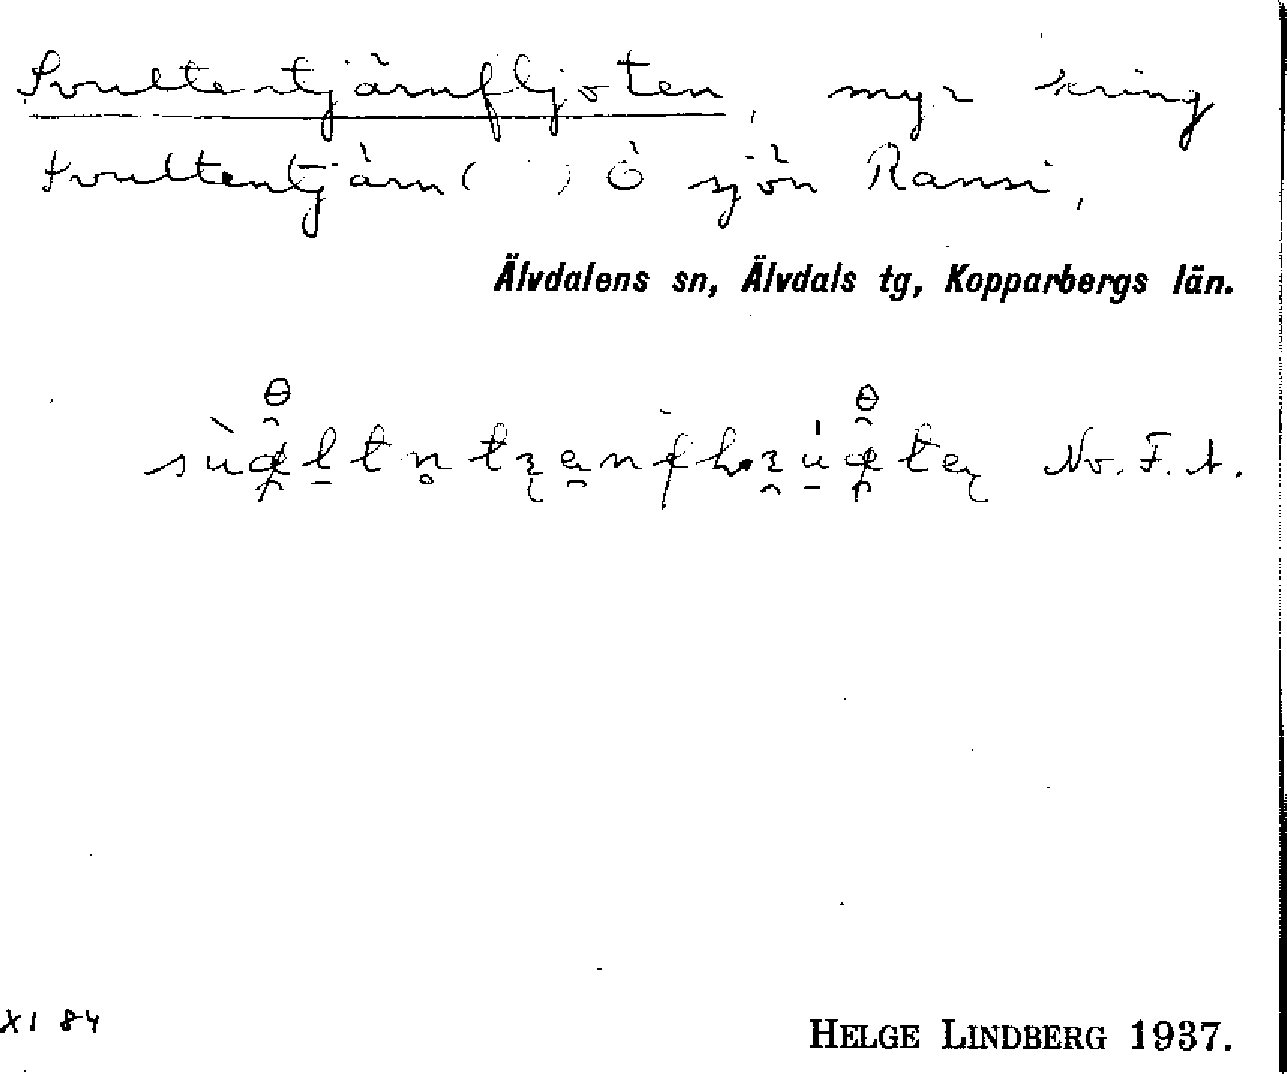 Svultentjärnfljoten, myr kring
Svultentjärn( ) Ö sjön Ransi,
Älvdalens sn, Älvdals tg, Kopparbergs län.
No. F. A.
XI 84
HELGE LINDBERG 1937.